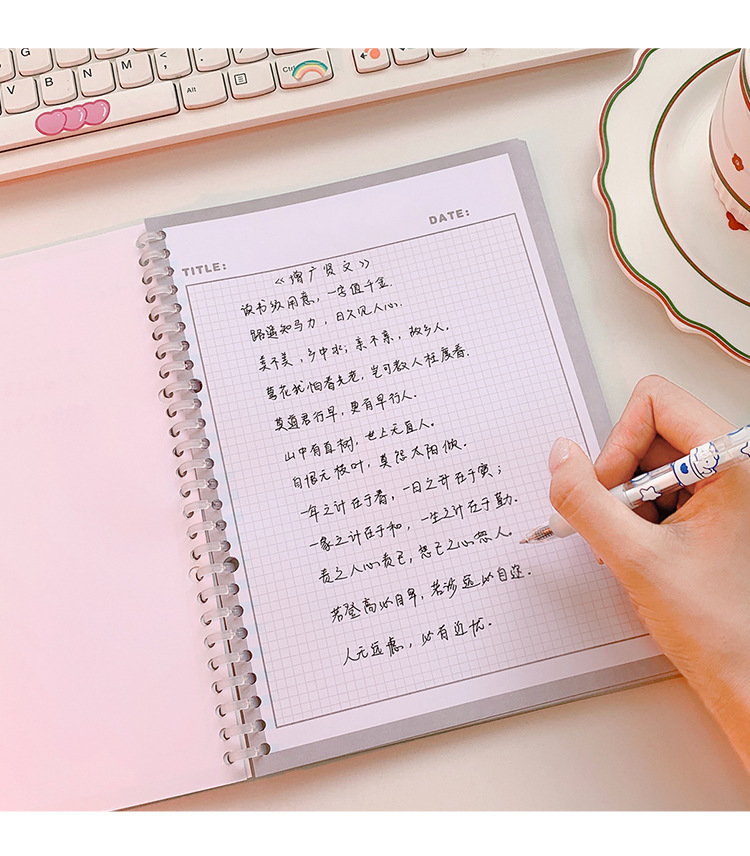 V B N M
Alt Ctrl
TITLE: DATE:
《增广贤文》
读书须用意，一字值千金.
路遥知马力，日久见人心.
美不美，乡中水；亲不亲，故乡人.
莺花犹怕春光老，岂可教人枉度春.
莫道君行早，更有早行人.
山中有直树，世上无直人.
自恨无枝叶，莫怨太阳偏.
一年之计在于春，一日之计在于寅；
一家之计在于和，一生之计在于勤.
责之人心责己，恕己之心恕人.
若登高必自卑，若涉远必自迩.
人无远虑，必有近忧.